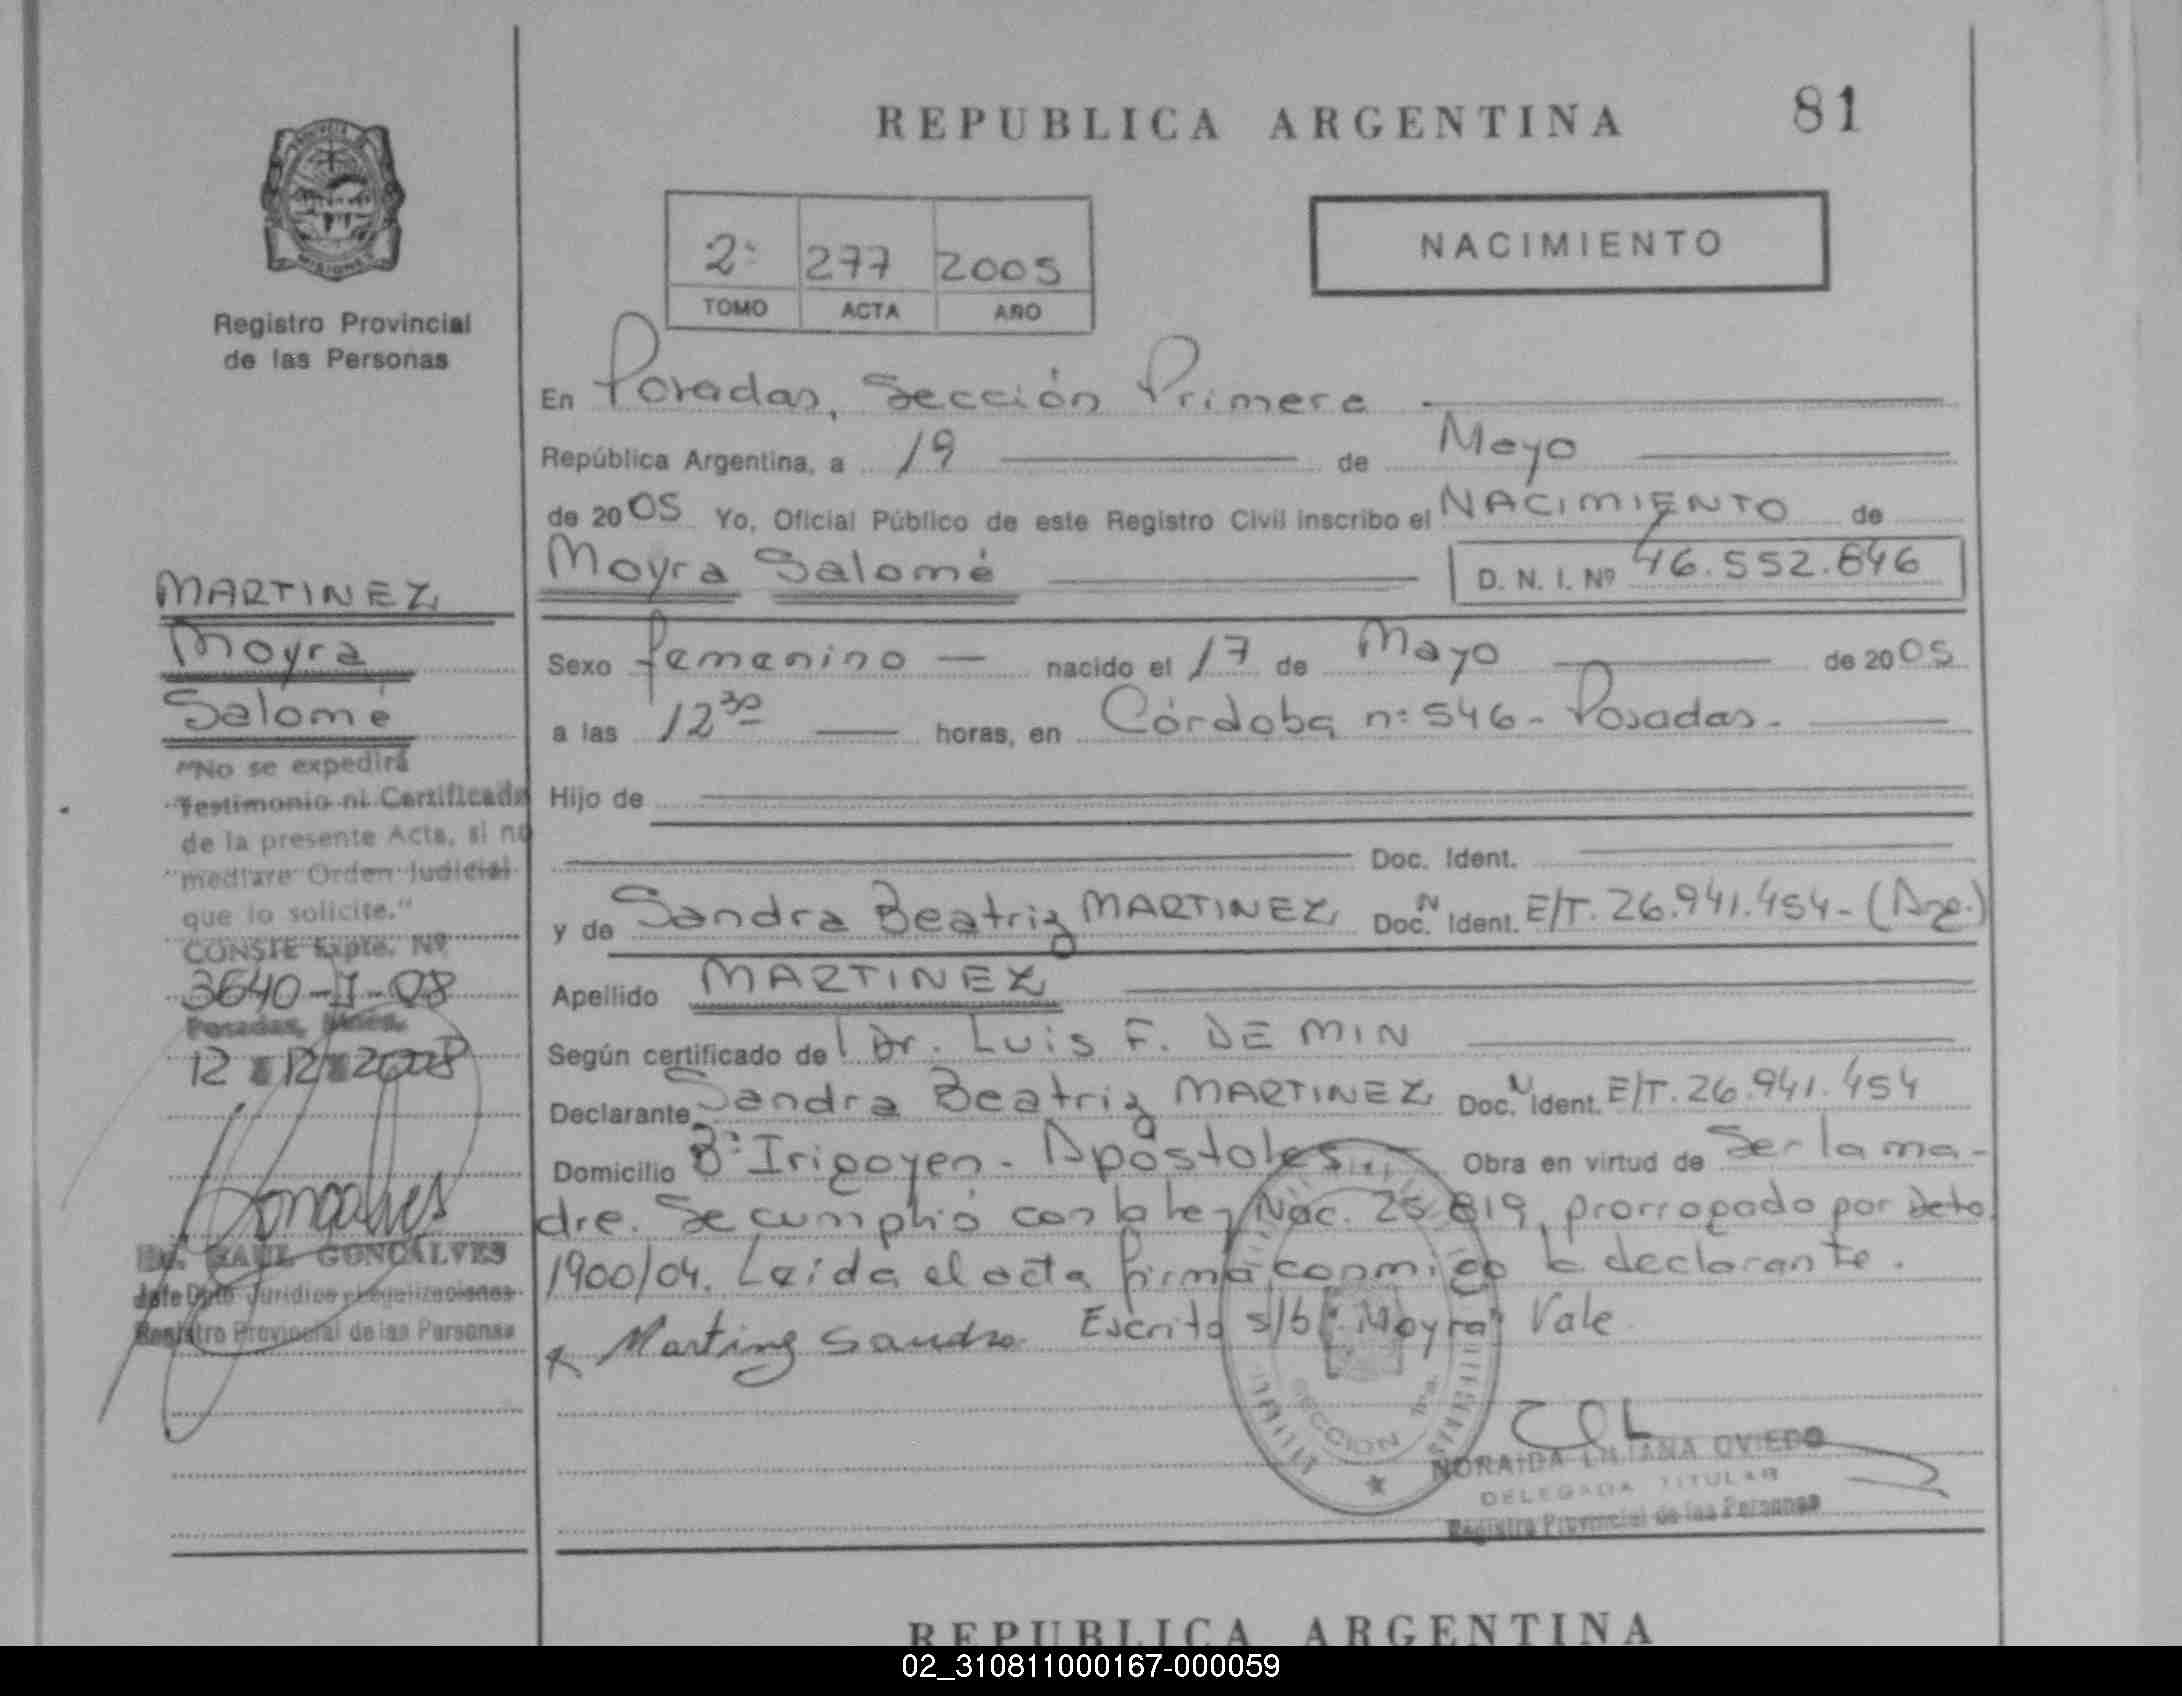 REPUBLICA ARGENTINA
81
PROVINCIA
MISIONES
Registro Provincial
de las Personas
2º 277 2005
TOMO ACTA AÑO
NACIMIENTO
En Posadas, Sección Primera
República Argentina, a 19 de Mayo
de 2005 Yo, Oficial Público de este Registro Civil inscribo el NACIMIENTO de
Moyra Salomé D. N. I. Nº 46.552.846
Sexo femenino — nacido el 17 de Mayo de 2005
a las 12 30 horas, en Córdoba nº 546 - Posadas.
Hijo de
Doc. Ident.
y de Sandra Beatriz MARTINEZ Doc. N Ident. E/T. 26.941.454 - (Arg.)
Apellido MARTINEZ
Según certificado de Dr. Luis F. DE MIN
Declarante Sandra Beatriz MARTINEZ Doc. N Ident. E/T. 26.941.454
Domicilio Bº Irigoyen - Apóstoles Obra en virtud de Ser la ma-
dre. Se cumplió con la ley Nac. 25.819, prorrogado por Dcto
1900/04. Leida el acta firma conmigo la declarante.
Martinez Sandra Escrito s/b: "Moyra" Vale
SECCION 1ra.
NORAIDA LILIANA OVIEDO
DELEGADA TITULAR
Registro Provincial de las Personas
MARTINEZ
Moyra
Salomé
"No se expedirá
Testimonio ni Certificado
de la presente Acta, si no
mediare Orden Judicial
que lo solicite."
CONSTE Expte. Nº
3640-I-08
Posadas, Mnes.
12 12 2008
Goncalves
Dr. RAUL GONCALVES
Jefe Dpto Jurídico y Legalizaciones
Registro Provincial de las Personas
REPUBLICA ARGENTINA
02_310811000167-000059